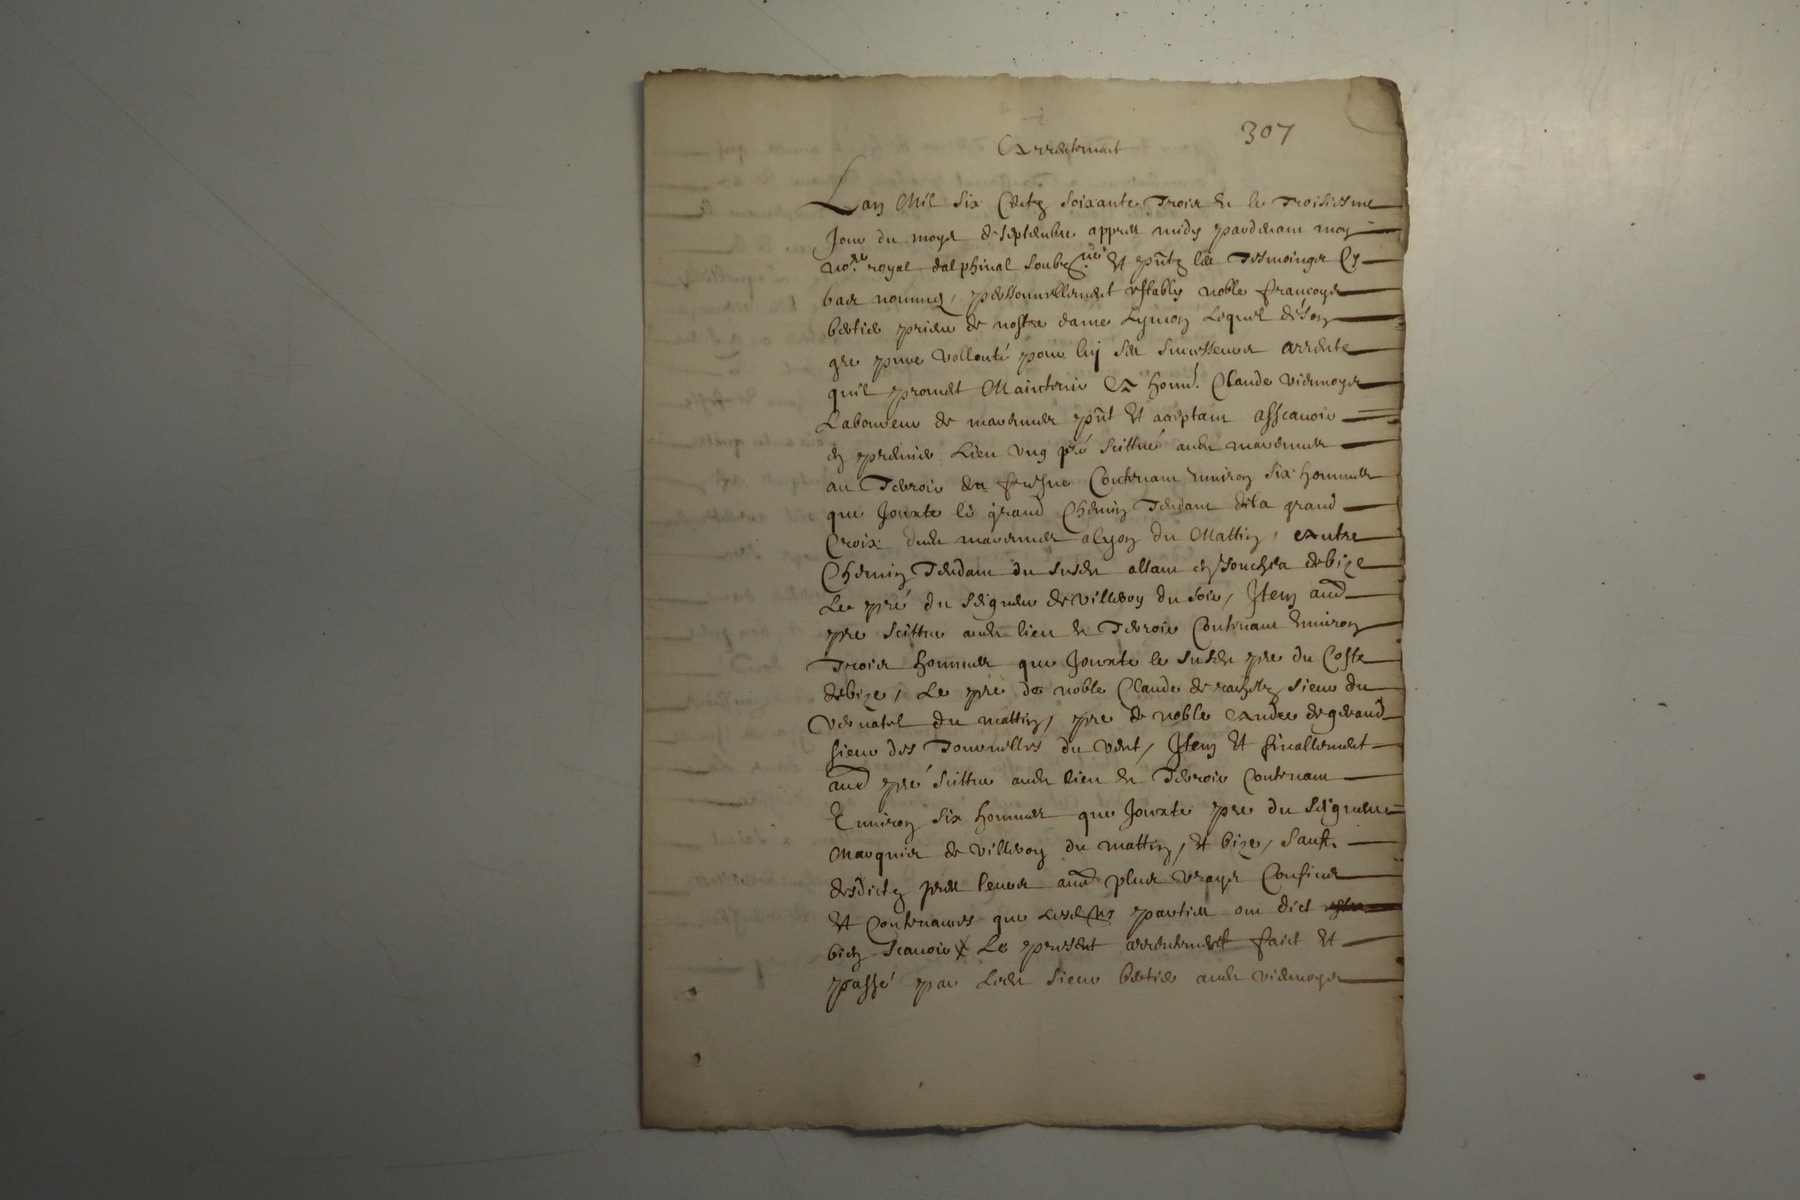 307
Arrentement
Lan Mil Six Centz Soixante Trois et le Troisiesme
Jour du moys de septembre appres midy pardevant moy
no.re royal dalphinal soubz.né et pñtz les Tesmoingz Cy
bas nommez, personnellement estably noble francoys
bertier prieur de nostre dame Lymon Lequel de son
gre pure vollonté pour luy ses successeurs arrente
quil promet Maintenir A honn. Claude viermoyes
Laboureur de marennes pñt et acceptant asscavoir
en premier Lieu Ung pré scittué aud. marennes
au Terroir du fresne Contenant Environ six hommes
que Jouxte le grand Chemin Tendant de la grand
Croix dud. marennes a lyon du Mattin, autre
Chemin Tendant du susd. allant en de bize
Le pré du seigneur de Villeroy du soir, Item aud
pre scittue aud. lieu et Terroir Contenant Environ
Trois hommes que Jouxte le susd. pre du Coste
de bize, Le pré de noble Claude de sieur du
vernatel du mattin, pre de noble André de gerand
sieur des Tournelles du vent, Item et finallement
aud pré scittue aud. lieu et Terroir Contenant
Environ six hommes que Jouxte pre du seigneur
Marquis de Villeroy du mattin, et bize, sauf
desdictz prés leurs aud plus vrays Confins
et Contenances que Lesd. parties ont dict
bien scavoir Le present arrentement faict et
passé par Led. sieur bertier aud. viermoyes